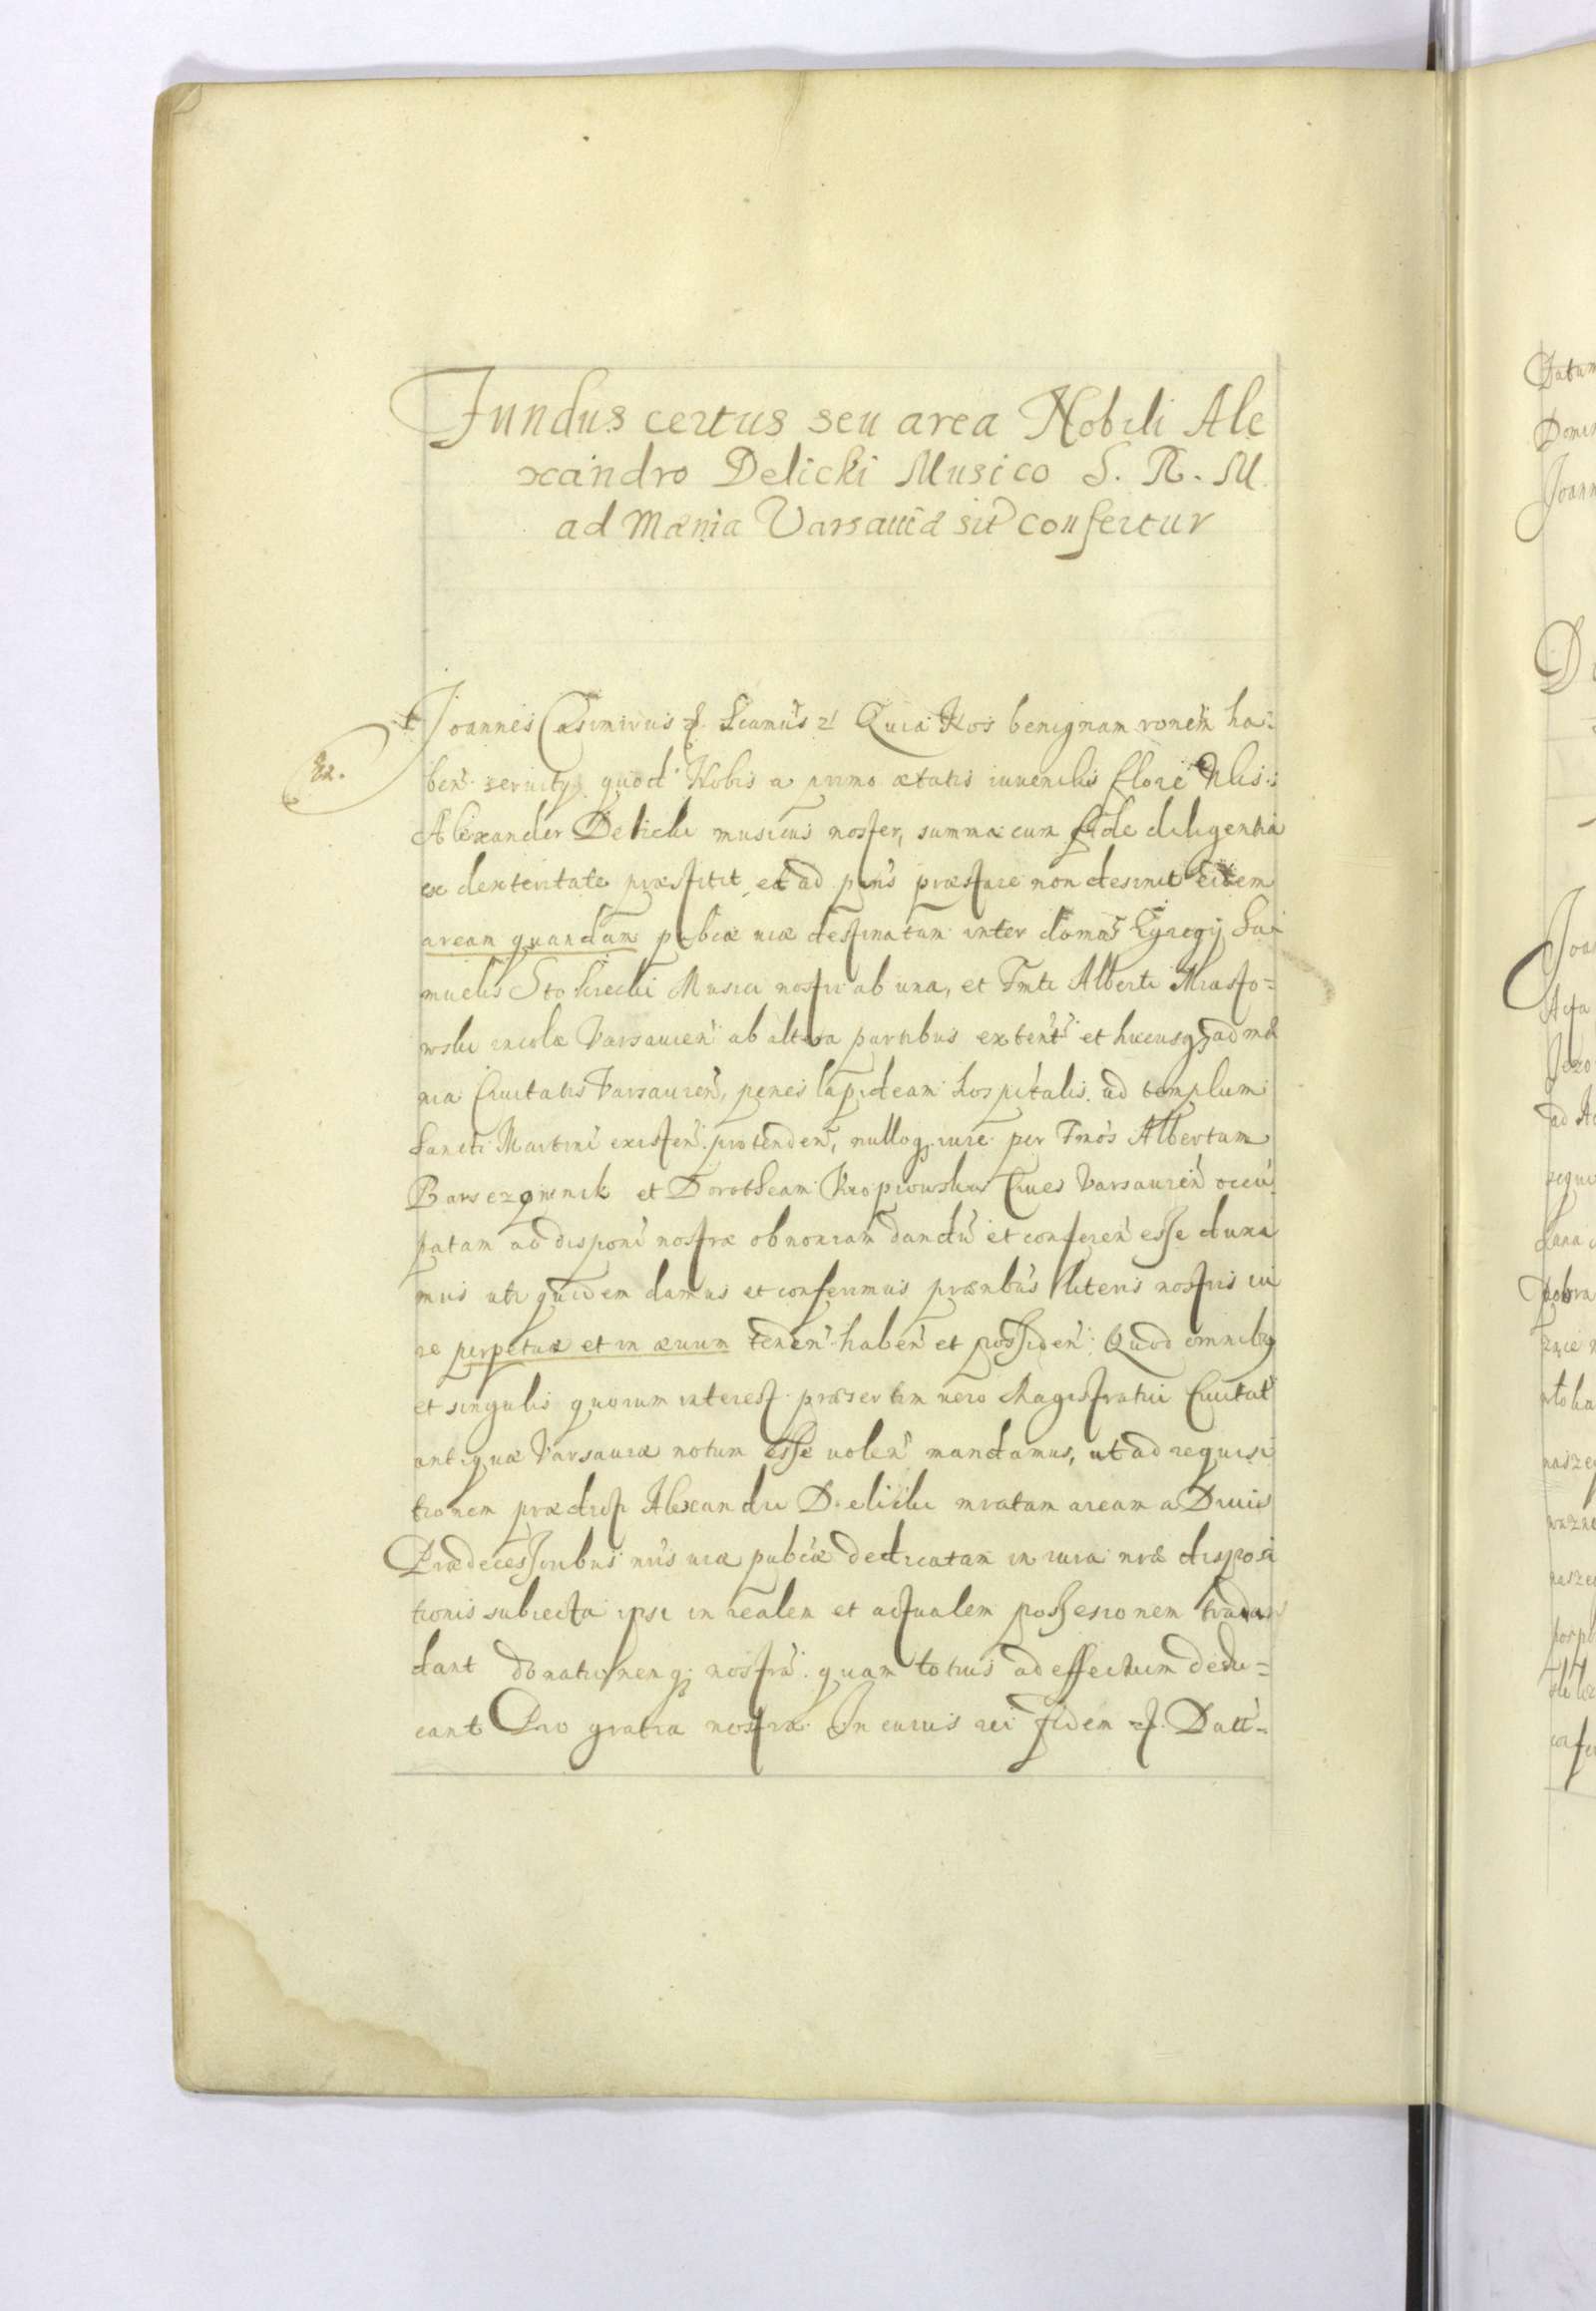 Fundus certus seu area Nobili Ale
xandro Delicki Musico S. R. M.
ad Mænia Varsaviæ sit confertur
Joannes Casimirus Quia Nos benignam ronem ha-
22.
ben servity quod Nobis a primo ætatis iuvenilis flore Nlis
Alexander Delicki musicus noster, summa cum fide diligentia
ex dexteritate præstitit et ad pns præstare non desinit eidem
aream quandam publicæ viæ destinatam inter domos Egregij Sa-
muelis Musici nostri ab una, et Fmti Alberti Miasko-
wski incolæ Varsavien ab altera partibus extent et hucusq; ad mæ
nia Civitatis Varsavien, penes lapideam hospitalis ad templum
Sancti Martini existen protenden, nulloq; iure per Fmos Albertum
et Dorotheam Cives Varsavien occu-
patam ac disponi nostræ obnoxiam dandu et conferen esse duxi
mus uti quidem damus et conferimus præntibus literis nostris iu
re perpetuo et in ævum tenen haben et possiden Quod omnibq
et singulis quorum interest præsertim vero Magistratui Civitat
antiquæ Varsaviæ notum esse volen mandamus, ut ad requisi
tionem prædicti Alexandri Delicki mratam aream a Divis
Prædecessoribus nris viæ publicæ dedicatam in iura nræ disposi
tionis subiecta ipsi in realem et actualem possesionem tradan
dant donationemq; nostra quam totius ad effectum dedu-
cant Pro gratia nostra In cuius rei fidem Datt-